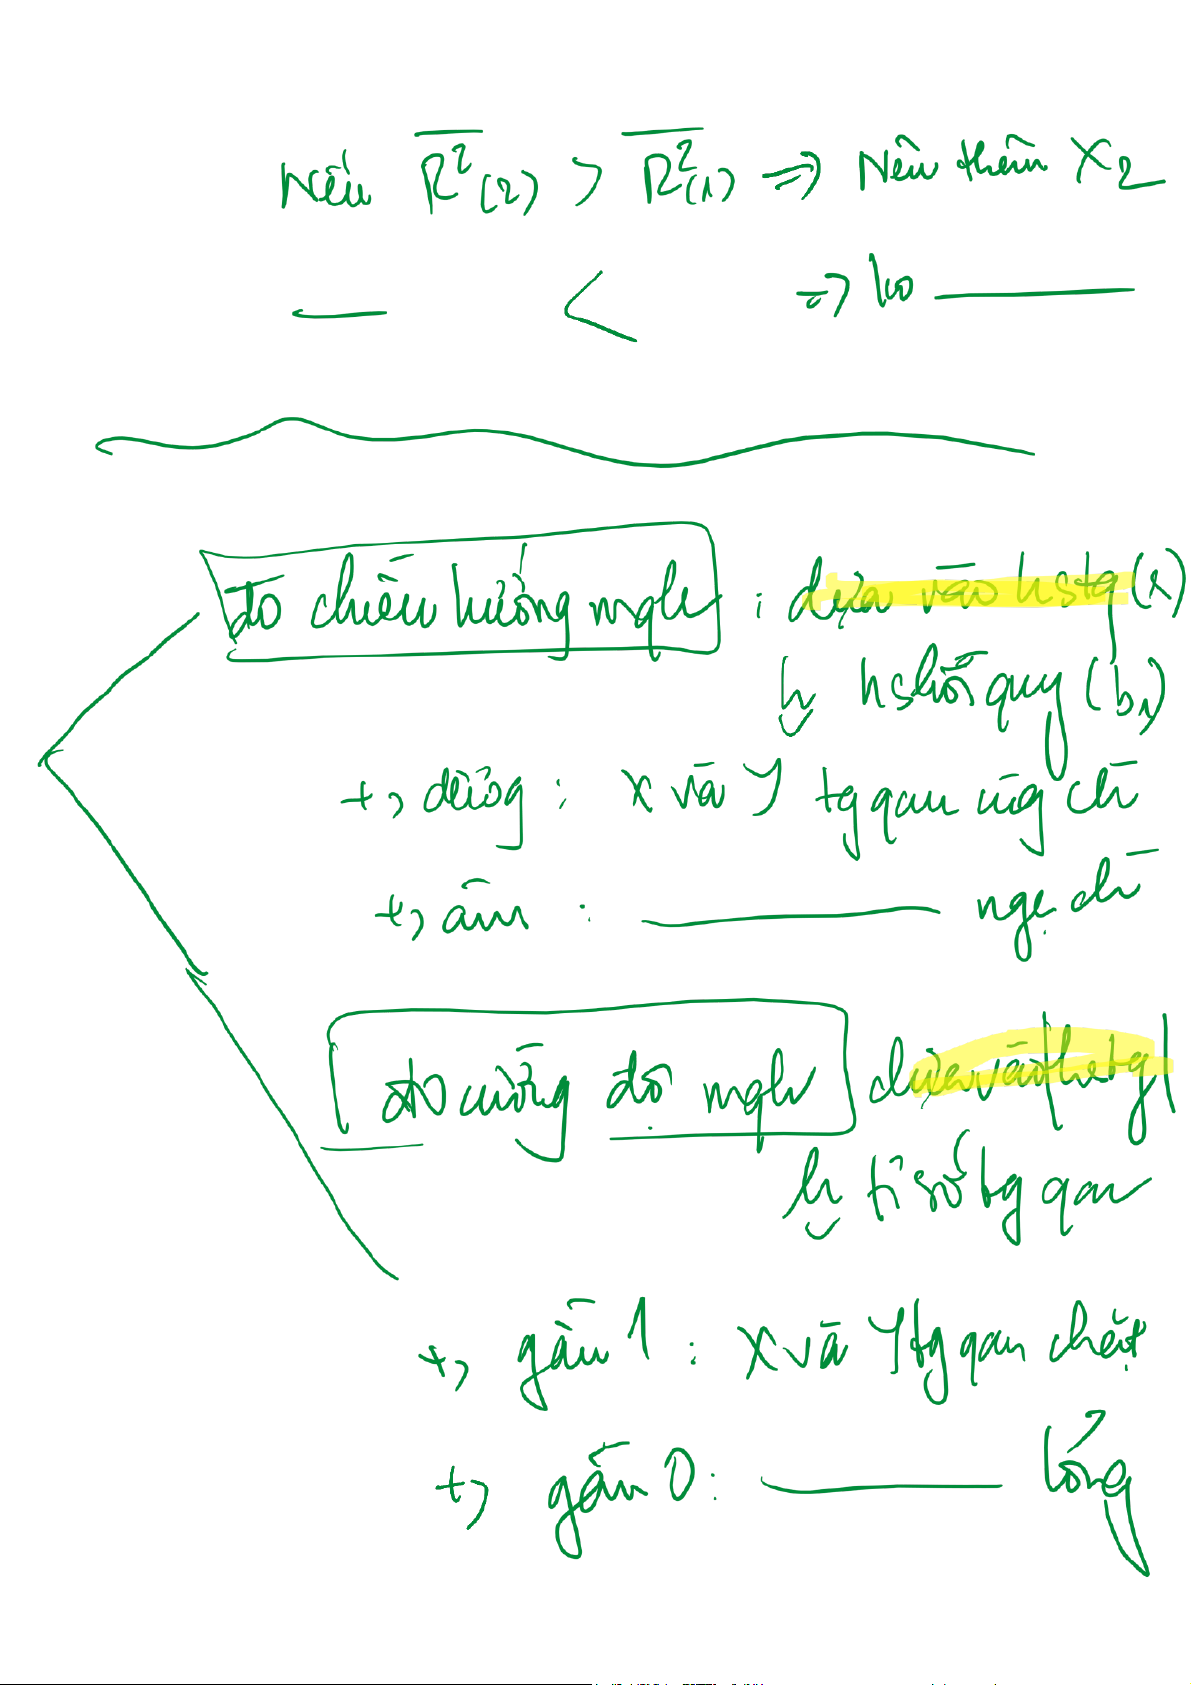 Nếu R²(2) > R²(1) => Nên thêm X2
— < => ko —
đo chiều hướng mqh : dựa vào hstq (r)
hs hồi quy (b1)
+, dương : X và Y tg quan cùng ch
+, âm : — ngc ch
đo cường độ mqh dựa vào |hstq|
tỉ số tg quan
+, gần 1 : X và Y tg quan chặt
+, gần 0 : — lỏng